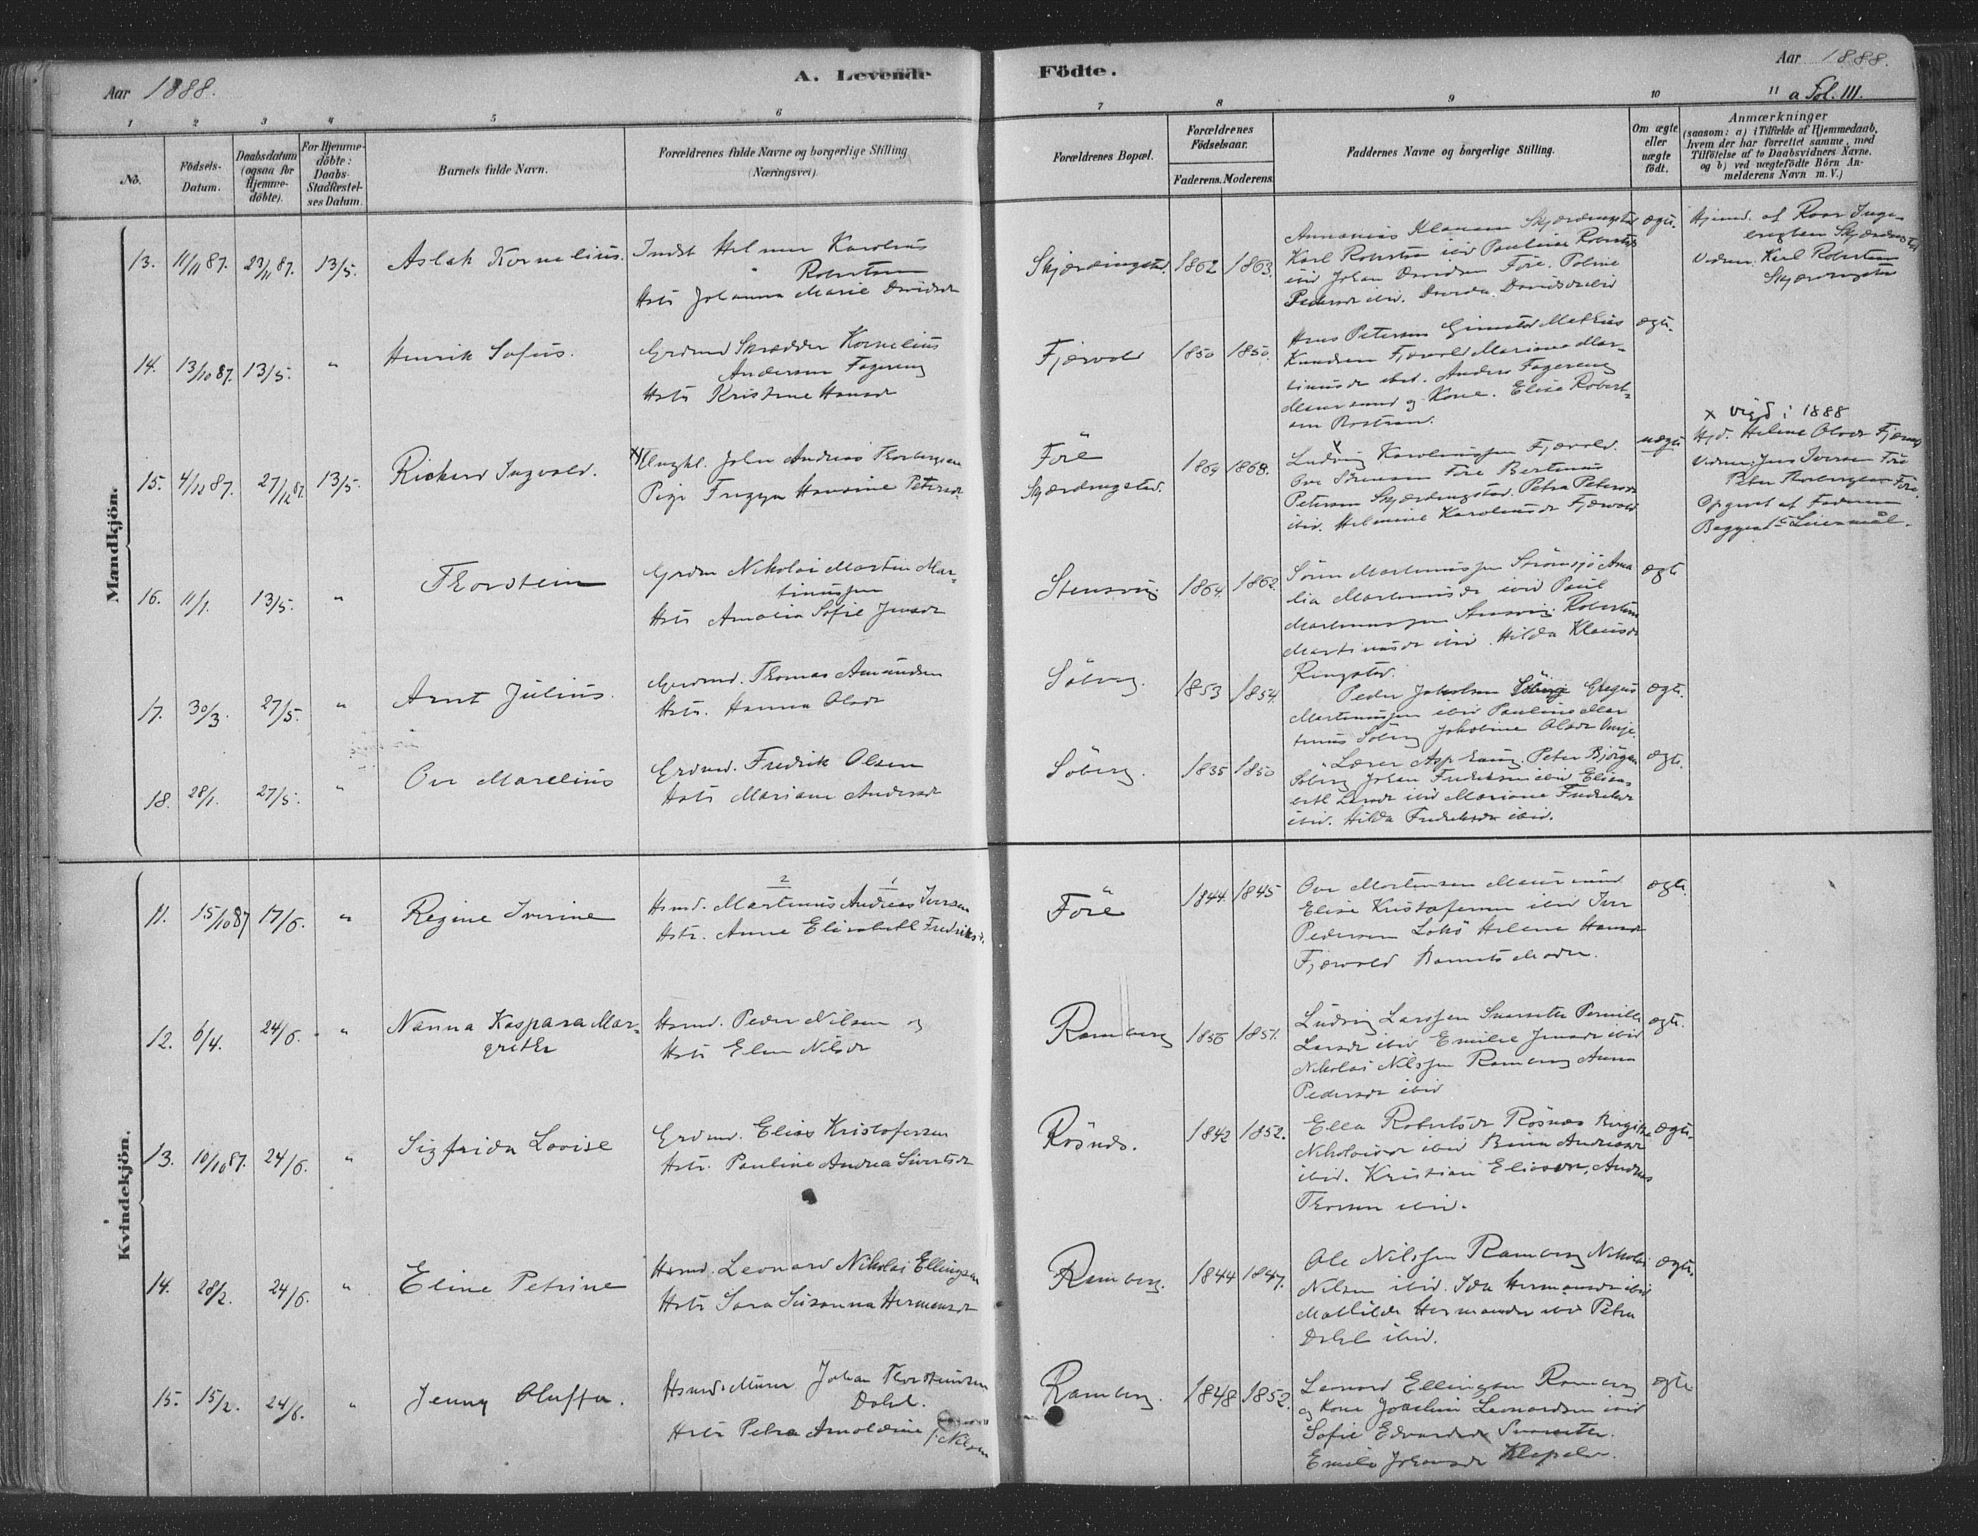 Aar 1888.
A. Levende Födte.
Aar 1888.
a Fol. 111.
1 2 3 4 5 6 7 8 9 10 11
No.
Födsels-Datum.
Daabsdatum (ogsaa for Hjemme-döbte).
For Hjemme-döbte: Daabs-Stadfæstel-ses Datum.
Barnets fulde Navn.
Forældrenes fulde Navne og borgerlige Stilling (Næringsvei)
Forældrenes Bopæl.
Forældrenes Födselsaar.
Faderens. Moderens.
Faddernes Navne og borgerlige Stilling.
Om ægte eller uægte födt.
Anmærkninger
(saasom: a) i Tilfælde af Hjemmedaab,
hvem der har forrettet samme, med
Tilföielse af to Daabsvidners Navne.
og b) ved uægtefödte Börn An-
melderens Navn m. V.)
Mandkjön.
13. 11/11 87. 23/11 87. 13/5. Aslak Kornelius.
Indst Helmer Karolius
Robertsen
Hstr Johanna Marie Davidsdr
Skjærdingstad. 1862 1863.
Karl Robertsen ibid Pauline Roberts
ibid Johan Davidsen Före.
Pedersdr ibid. Davidsdr ibid
ægte.
Hjemd. af
Vidner. Karl Robertsen
14. 13/10 87. 13/5. " Henrik Sofus.
Grdmd Skrædder Kornelius
Andersen Fagereng
Hstr Kristine Hansdr
Fjærvold 1850 1850.
Hans Petersen Gimstad Mathias
Knudsen Fjærvold Mariane Mar-
tinusdr ibid. Anders Fagereng
og Kone. Elise Robert-
ægte.
x vigd i 1888
15. 4/12 87. 27/12 87. 13/5. Rickard Ingvald.
x Ungkl. John Andreas Thorbergsen
Pige Fregga Hansine Petersdr
Före
Skjærdingstad.
1864 1868.
Ludvig Karoliussen Fjærvold.
Ove Sörensen Före Bertinus
Petersen Skjærdingstad. Petra Petersdr
ibid. Helmine Karoliusdr Fjærvold
uægte
Hjd. Helene Olsdr Fjærvold
Vidner: Jens Iversen Före
Peter Thorbergsen Före.
Opgivet af Faderen
Begges 1ste Leiermaal.
16. 11/1. 13/5. " Thorstein
Grdm Nikolai Martin Mar-
tinussen
Hstr Amalia Sofie Jensdr
Stensvig 1864. 1862.
Sören Martinussen Strömsjö Ama
lia Martinusdr ibid Paul
Martinussen Stensvig Robertine
Martinusdr ibid. Hilda Klausdr
Ringstad.
ægte
17. 30/3. 27/5. " Arnt Julius.
Grdmd. Thomas Amundsen
Hstr. Hanna Olsdr
Söberg. 1853 1854.
Peder Jakobsen Söberg Gregus
Martinussen ibid Pauline Mar
tinus Söberg Jakobine Olsdr
ægte.
18. 28/1. 27/5. " Ove Marelius
Grdmd. Fredrik Olsen
Hstr Mariane Andersdr
Söberg. 1835 1850
Lærer Asphaug. Peter Björgen
Söberg Johan Fredriksen ibid Elisa
beth Larsdr ibid Mariane Fredriksdr
ibid. Hilda Fredriksdr ibid.
ægte.
Kvindekjön.
11. 15/10 87 17/6. " Regine Iverine
2 1
Hsmd. Martinus Andreas Iversen
Hstr. Anne Elisabeth Fredriksd.
Före 1844. 1845
Ove Mortensen
Elise Kristofersen ibid Iver
Pedersen Lokö Helene Hansdr
Fjærvold Barnets Moder.
ægte.
12. 6/4. 24/6. " Nanna Kaspara Mar-
grethe
Hsmd. Peder Nilsen og
Hstr Elen Nilsdr
Ramberg 1856 1851.
Ludvig Larssen Pernille
Larsdr ibid Emilie Jensdr ibid
Nikolai Nilssen Ramberg Anna
Pedersdr ibid
ægte.
13. 10/10 87. 24/6. " Sigfrida Lovise
Grdmd. Elias Kristofersen
Hstr. Pauline Andrea Sivertsdr
Rösnäs. 1842 1852.
Ella Robertsdr Rösnæs Birgitte
Nikolaisdr ibid Andreasdr
ibid. Kristian Eliassen, Andreas
Thorsen ibid.
ægte.
14. 28/2. 24/6. " Eline Petrine
Hsmd. Leonard Nikolai Ellingsen
Hstr Sara Susanna Hermansdr
Ramberg. 1844 1847.
Ole Nilssen Ramberg Nikolai
Nilsen ibid. Ida Hermansdr ibid
Mathilde Hermansdr ibid Petra
Dahl ibid.
ægte.
15. 15/2. 24/6. " Jenny Oluffa.
Hsmd. Murer Johan Thorsteinsen
Dahl.
Hstr Petra Arnoldine Nilsen
Ramberg. 1848 1852.
Leonard Ellingsen Ramberg
og Kone Leonardsen ibid
Sofie Edvardsdr
Emilie Johansdr
ægte